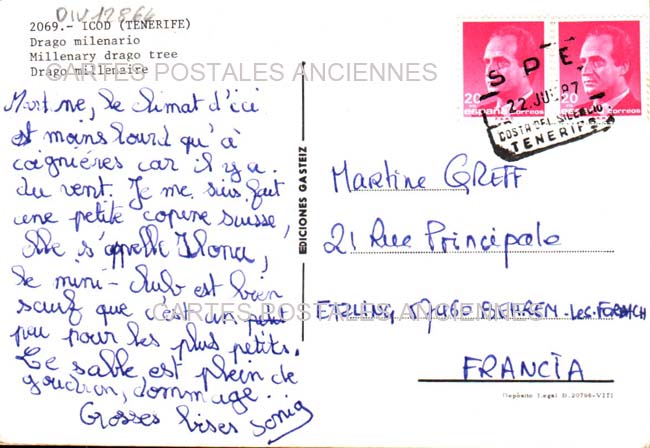 DIV12864
2069.- ICOD (TENERIFE)
Drago milenario
Millenary drago tree
Drago millenaire
CARTES POSTALES ANCIENNES
Martine, le climat d'ici
est moins lourd qu'à
coignières car il y a
du vent. Je me suis fait
une petite copine suisse,
elle s'appelle Ilona,
le mini-club est bien
sauf que c'est un peu
peu pour les plus petits.
Le sable est plein de
goudron, dommage...
Grosses bises Sonia
EDICIONES GASTEIZ
20 20
españa correos
S P E
22.JUL.87
COSTA DEL SILENCIO
TENERIFE
Martine GREFF
21 Rue Principale
ETZLING 57460 BEHREN-Les-FORBACH
CARTES POSTALES ANCIENNES
FRANCIA
Depósito Legal D.20796-VIII